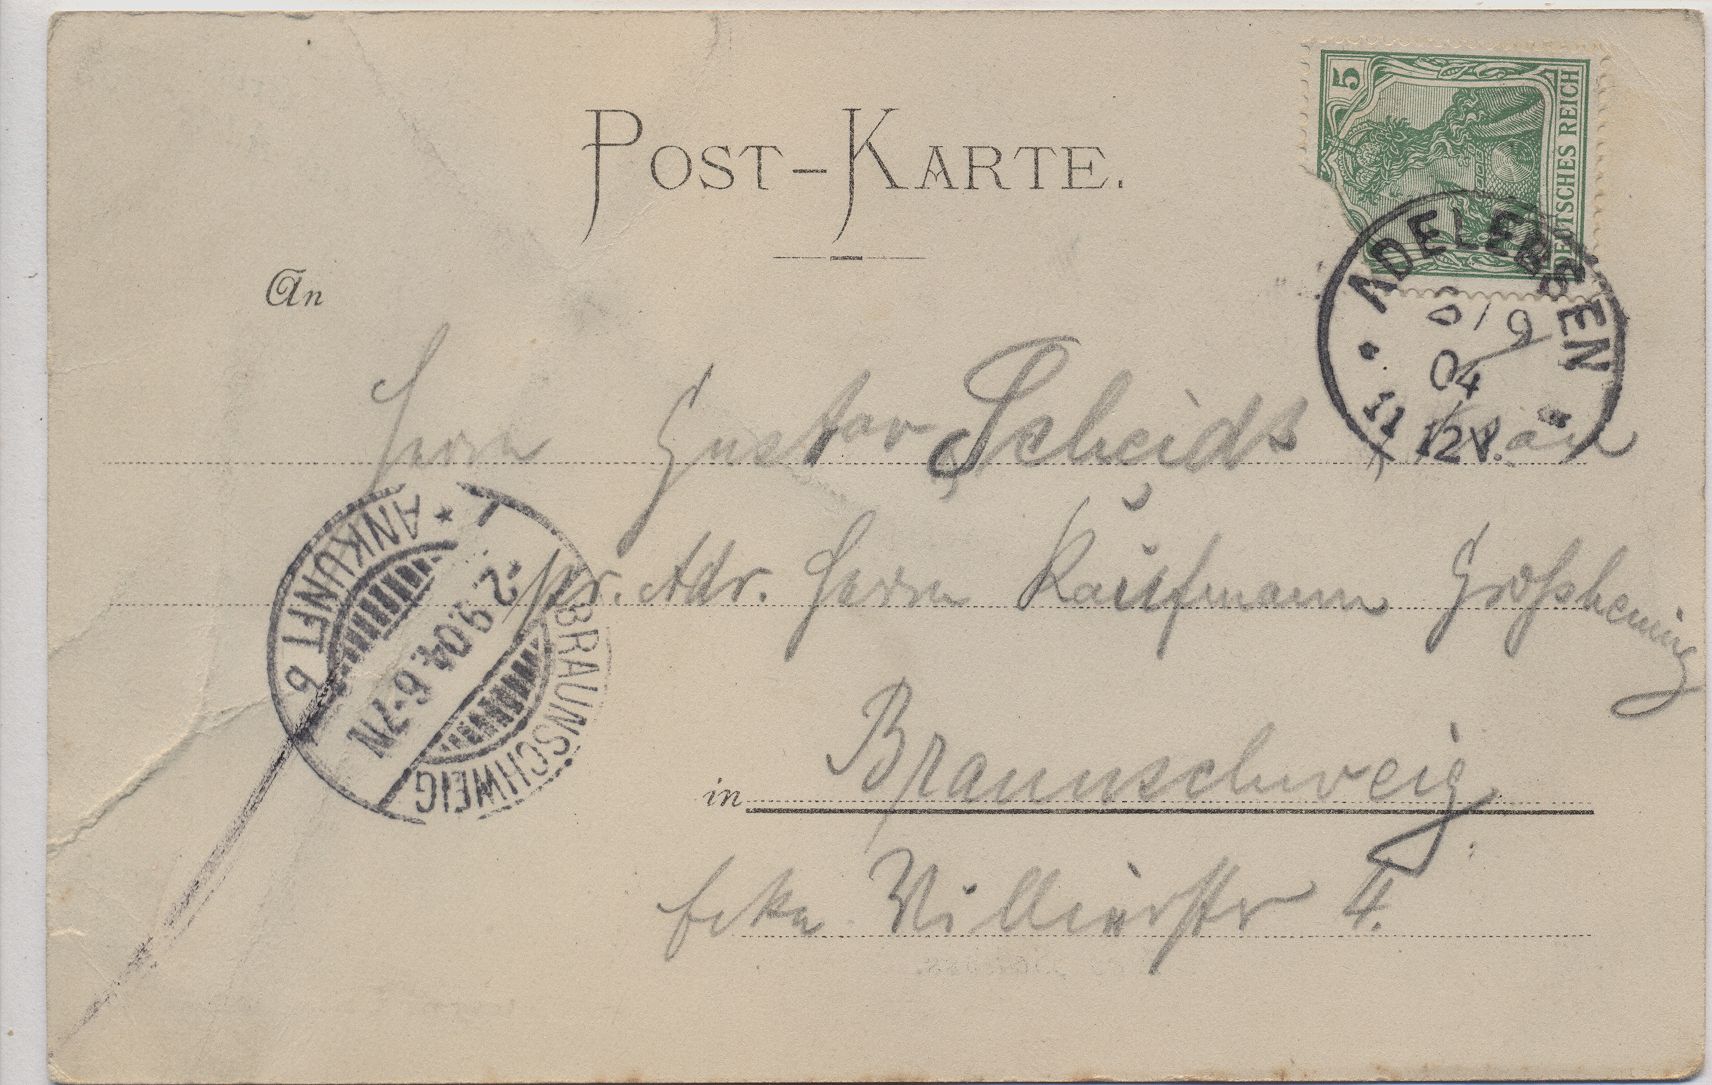 POST-KARTE.
5
DEUTSCHES REICH
ADELEBSEN
/9
04
11 12V.
An
Herrn Gustav Scheidt
pr. Adr. Herrn Kaufmann
in Braunschweig
Ecke 4.
ANKUNFT 6
2.9.04.6-7N.
BRAUNSCHWEIG